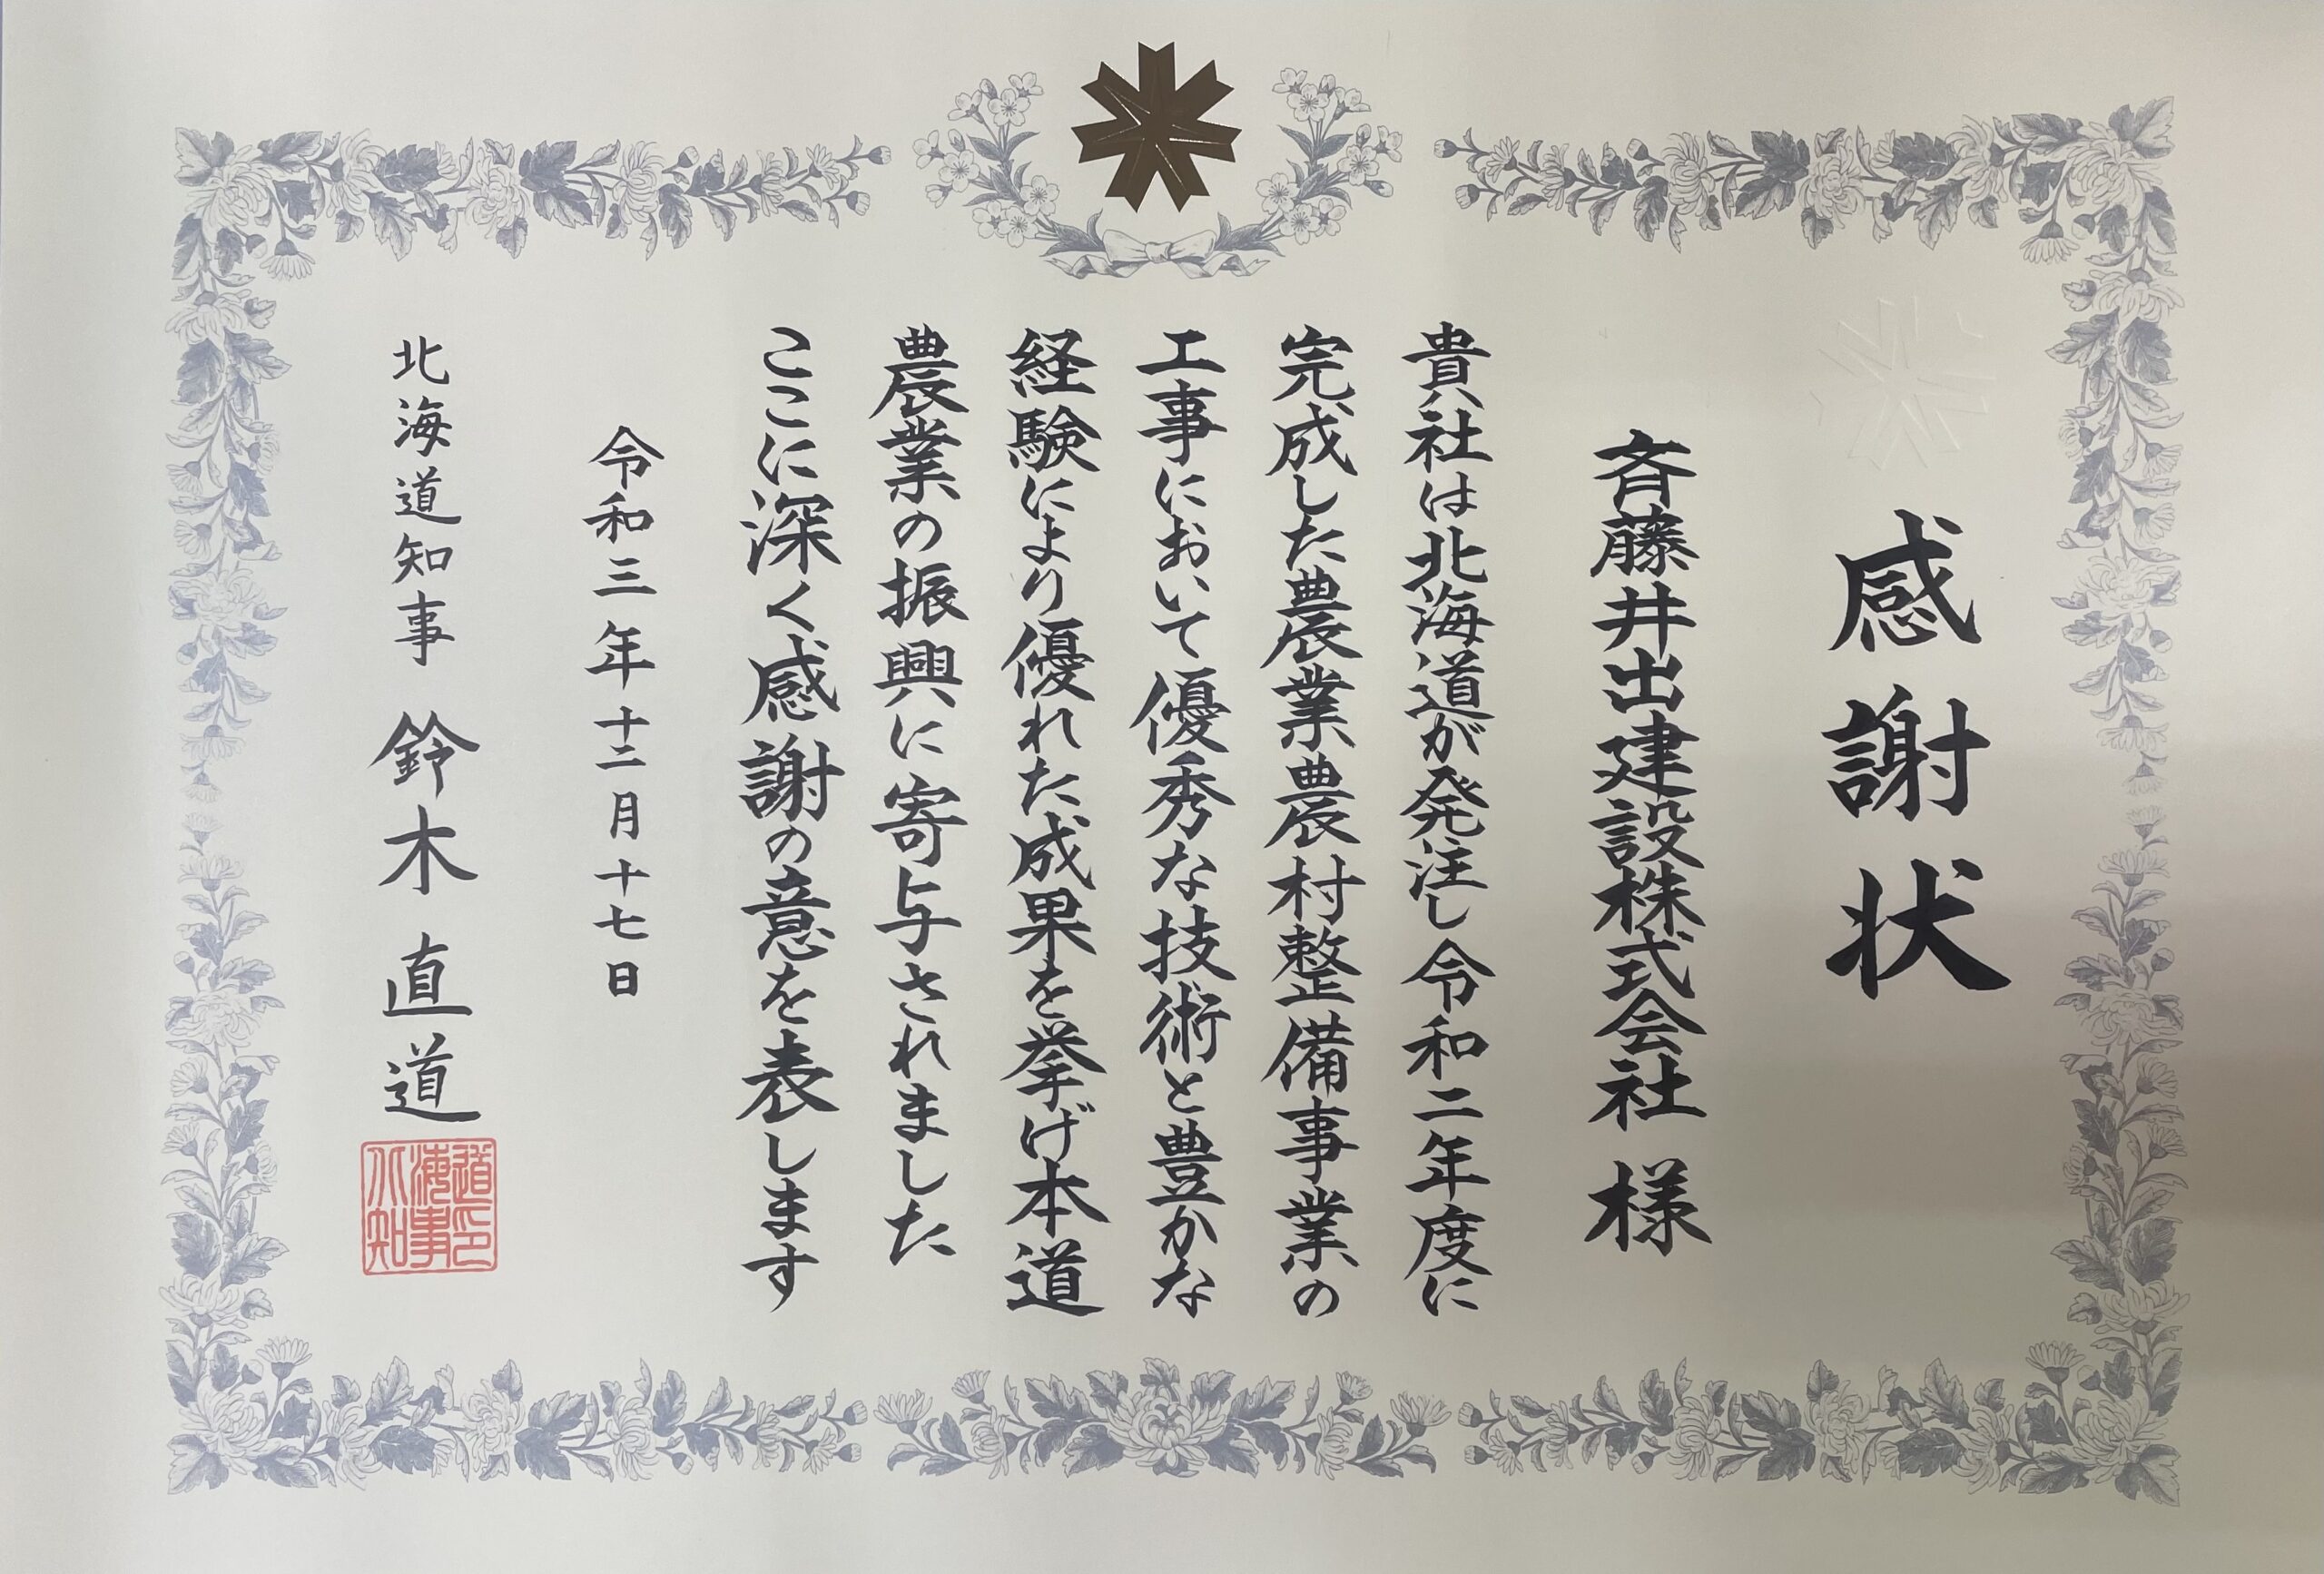 感謝状
斉藤井出建設株式会社 様
貴社は北海道が発注し令和二年度に
完成した農業農村整備事業の
工事において優秀な技術と豊かな
経験により優れた成果を挙げ本道
農業の振興に寄与されました
ここに深く感謝の意を表します
令和三年十二月十七日
北海道知事 鈴木直道
北海道知事印